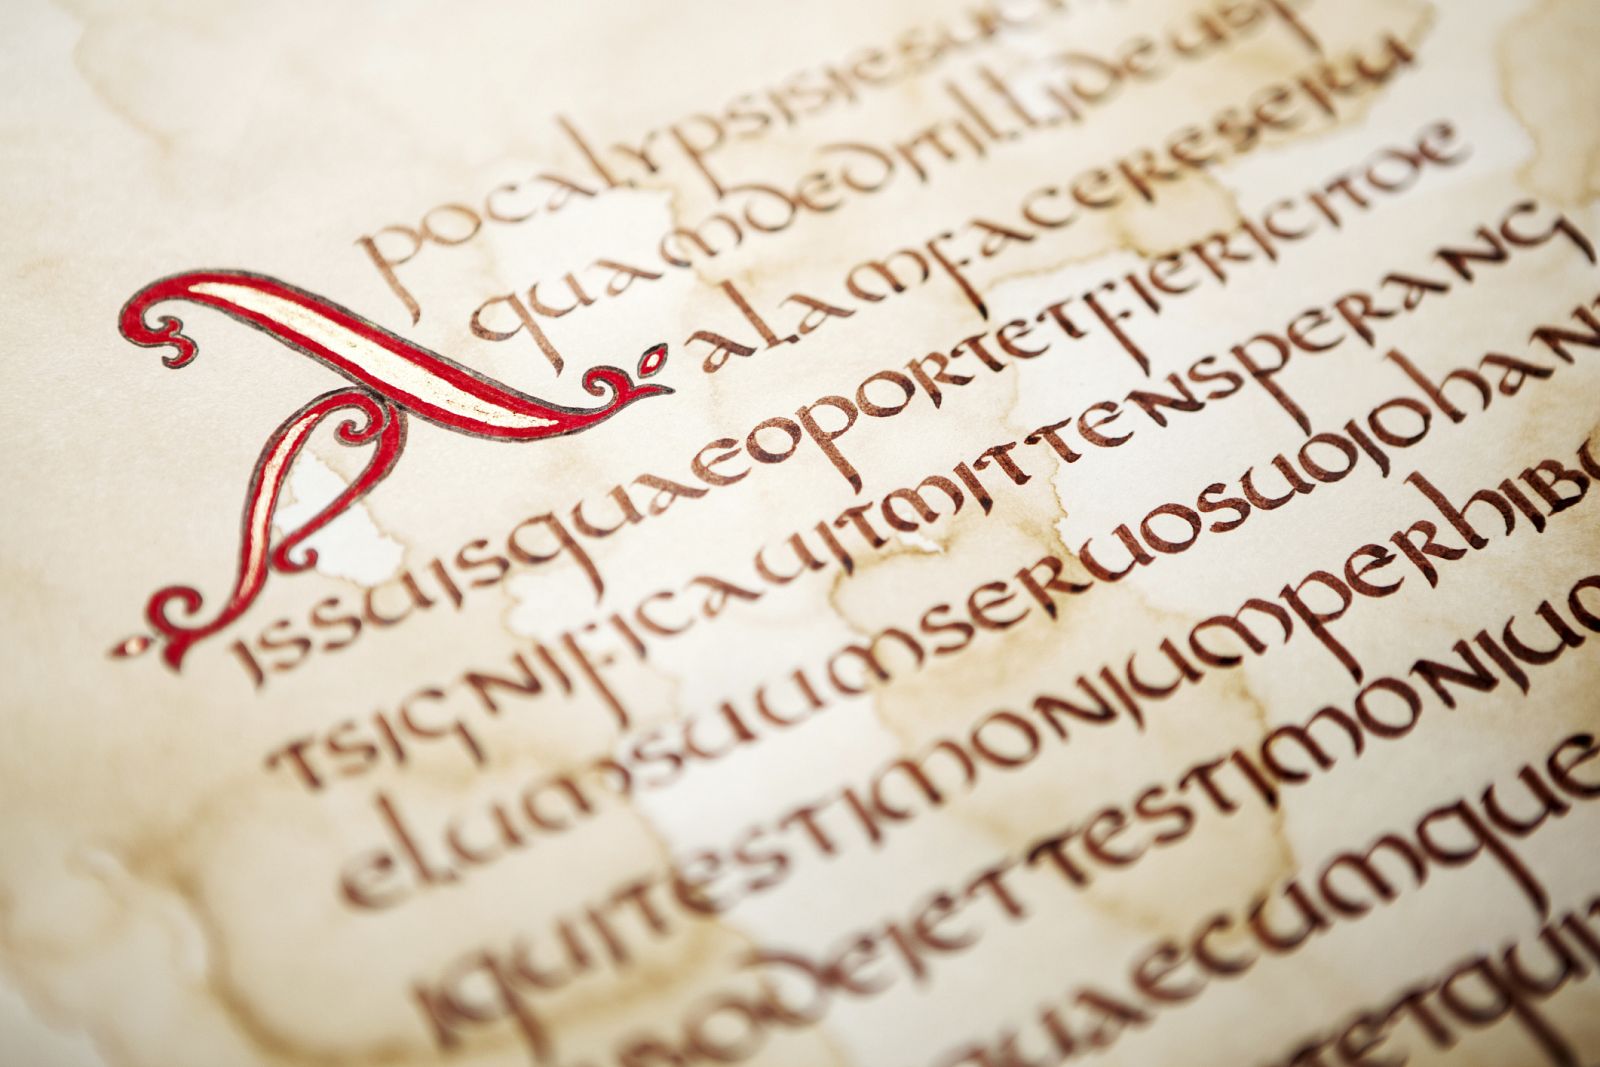 Apocalypsisiesuc
quamdeditillideusp
alamfacereseru
issuisquaeoportetfiericitoe
tsignificauitmittensperang
elumsuumseruosuoiohan
iquitestimoniumperhibu
bodeiettestimoniuo
quaecumque
etqui